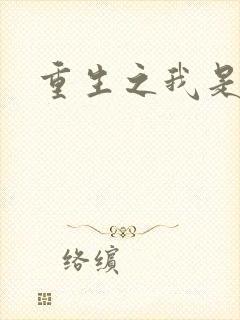 重生之我是
络缤